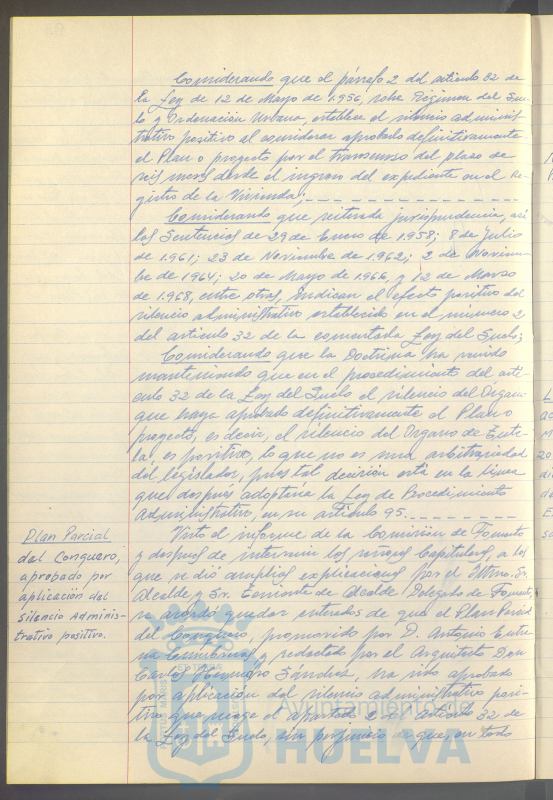 Considerando que el párrafo 2 del artículo 32 de
la Ley de 12 de Mayo de 1.956, sobre Régimen del Sue-
lo y Ordenación Urbana, establece el silencio administ
trativo positivo al considerar aprobado definitivamente
el Plan o proyecto por el transcurso del plazo de
seis meses desde el ingreso del expediente en el Re-
gistro de la Vivienda;
Considerando que reiterada jurisprudencia, así
las Sentencias de 29 de Enero de 1.958; 8 de Julio
de 1.961; 23 de Noviembre de 1.962; 2 de Noviem-
bre de 1964; 20 de Mayo de 1.966, y 12 de Marzo
de 1.968, entre otras, indican el efecto positivo del
silencio administrativo establecido en el número 2
del artículo 32 de la comentada Ley del Suelo;
Considerando que la Doctrina ha venido
manteniendo que en el procedimiento del artí-
culo 32 de la Ley del Suelo el silencio del Organo
que haya aprobado definitivamente el Plan o
proyecto, es decir, el silencio del Organo de Tute-
la, es positivo, lo que no es una arbitrariedad
del legislador, pues tal decisión está en la línea
que despues adoptaría la Ley de Procedimiento
Administrativo, en su artículo 95.
Visto el informe de la Comisión de Fomento
y despues de intervenir los señores Capitulares, a los
que se dió amplias explicaciones por el Iltmo. Sr.
Alcalde y Sr. Teniente de Alcalde Delegado de Fomento,
se acordó quedar enterados de que el Plan Parcial
del Conquero, promovido por D. Antonio
y redactado por el Arquitecto Don
Carlos Sánchez, ha sido aprobado
por aplicación del silencio administrativo posi-
tivo que recoge el apartado 2 del artículo 32 de
la Ley del Suelo, sin perjuicio de que, en todo
Plan Parcial
del Conquero,
aprobado por
aplicación del
silencio adminis-
trativo positivo.
Ayuntamiento de
HUELVA